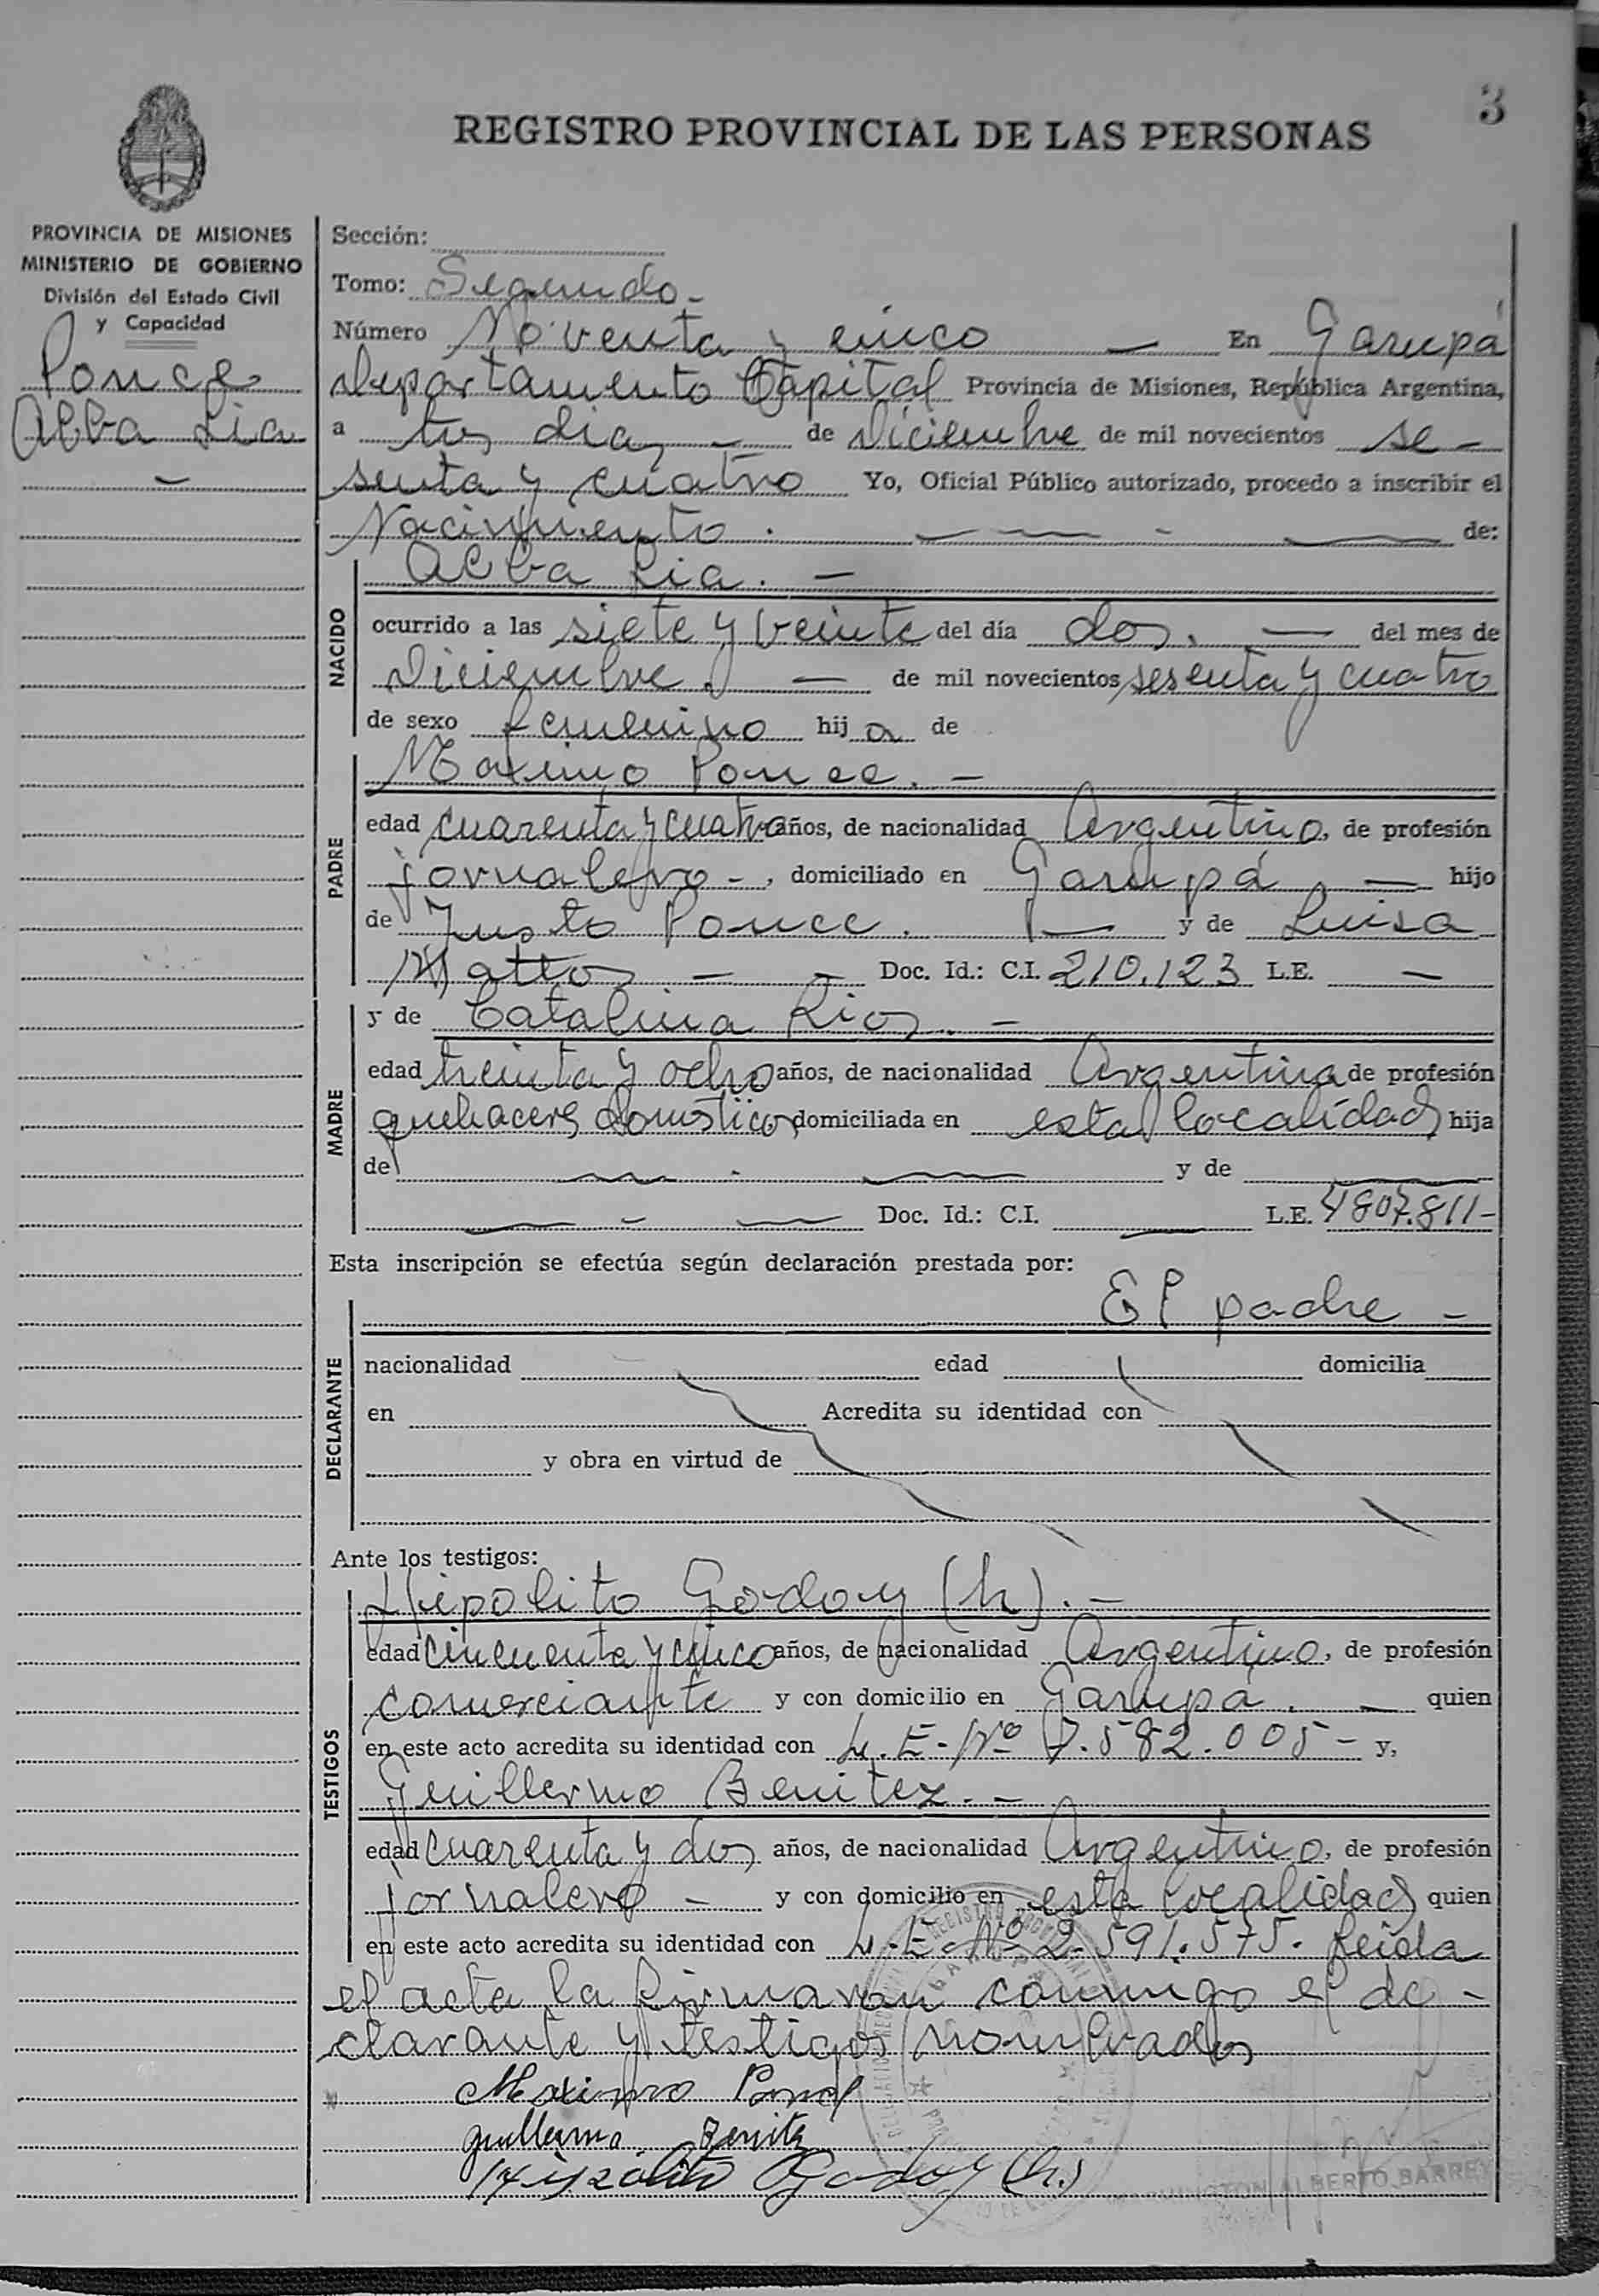 3
REGISTRO PROVINCIAL DE LAS PERSONAS
PROVINCIA DE MISIONES
MINISTERIO DE GOBIERNO
División del Estado Civil
y Capacidad
Ponce
Alba Lia
—
Sección:
Tomo: Segundo -
Número Noventa y cinco — En Garupá
Departamento Capital Provincia de Misiones, República Argentina,
a tres dias — de Diciembre de mil novecientos se -
senta y cuatro Yo, Oficial Público autorizado, procedo a inscribir el
Nacimiento . — — - — de:
NACIDO
Alba Lia. —
ocurrido a las siete y veinte del día dos. — del mes de
Diciembre. — de mil novecientos sesenta y cuatro
de sexo femenino hij a de
PADRE
Maximo Ponce. —
edad cuarenta y cuatro años, de nacionalidad Argentino, de profesión
jornalero - , domiciliado en Garupá — hijo
de Justo Ponce. — y de Luisa
Mattos — - Doc. Id.: C.I. 210.123 L.E. —
MADRE
y de Catalina Rios. —
edad treinta y ocho años, de nacionalidad Argentina de profesión
quehaceres domesticos domiciliada en esta localidad hija
de — - — y de —
— - — Doc. Id.: C.I. — L.E. 4807.811-
Esta inscripción se efectúa según declaración prestada por:
DECLARANTE
El padre -
nacionalidad edad domicilia
en Acredita su identidad con
y obra en virtud de
Ante los testigos:
TESTIGOS
Hipolito Godoy (h). -
edad cincuenta y cinco años, de nacionalidad Argentino, de profesión
comerciante y con domicilio en Garupá. — quien
en este acto acredita su identidad con L.E. Nº 7.582.005 - y,
Guillermo Benitez. -
edad cuarenta y dos años, de nacionalidad Argentino, de profesión
jornalero - y con domicilio en esta localidad quien
en este acto acredita su identidad con L.E. Nº 2.591.575. Leida
el acta la firmaran conmigo el de -
clarante y testigos nombrados
Maximo Ponce
guillermo Benitez
Hipolito Godoy (h.)
ALBERTO BARREY